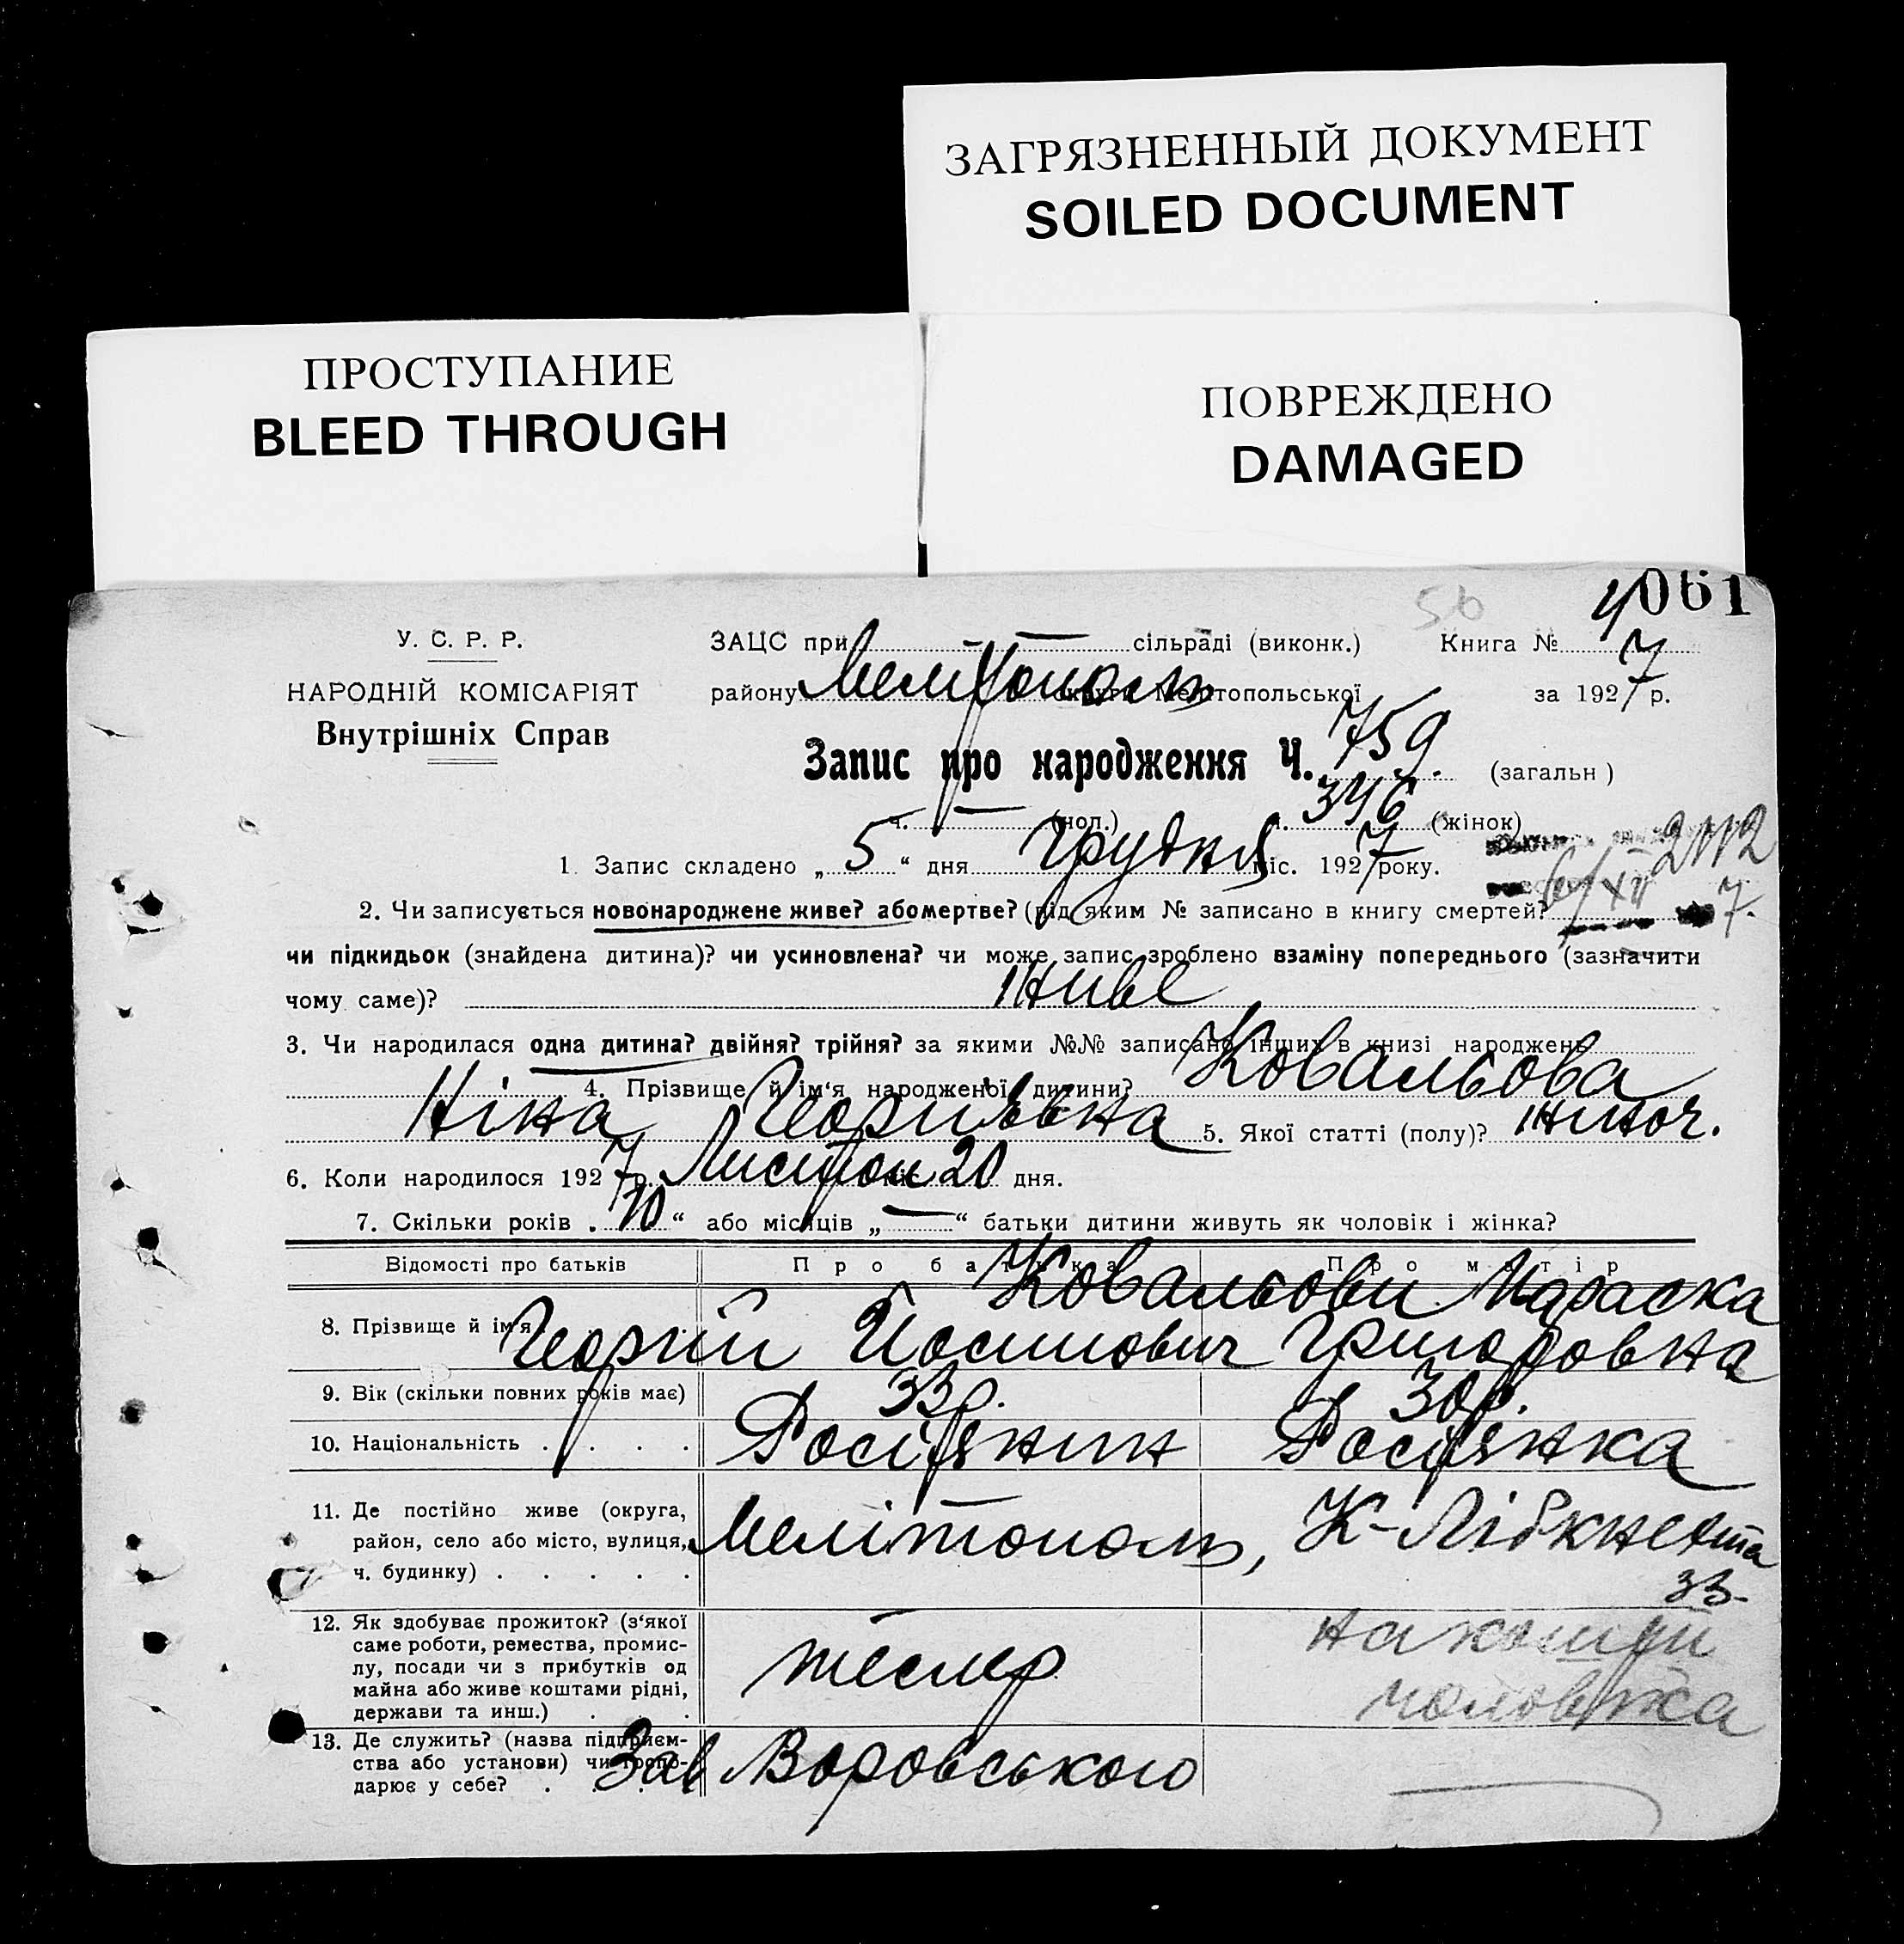 ЗАГРЯЗНЕННЫЙ ДОКУМЕНТ
SOILED DOCUMENT
ПРОСТУПАНИЕ
BLEED THROUGH
ПОВРЕЖДЕНО
DAMAGED
56 4061
У. С. Р. Р.
НАРОДНІЙ КОМІСАРІЯТ
Внутрішніх Справ
ЗАЦС при — сільраді (виконк.) Книга № 7
району Мелітополь округи Мелітопольської за 1927 р.
Запис про народження Ч. 759 (загальн)
ч. — (чол.) ч. 346 (жінок)
1. Запис складено „5“ дня Грудня міс. 1927 року.
2112
6/XII 7.
2. Чи записується новонароджене живе? або мертве? (під яким № записано в книгу смертей?
чи підкидьок (знайдена дитина)? чи усиновлена? чи може запис зроблено взаміну попереднього (зазначити
чому саме)? Живе
3. Чи народилася одна дитина? двійня? трійня? за якими №№ записано інших в книзі народжень
4. Прізвище й ім'я народженої дитини? Ковальова
Ніна Георгіївна 5. Якої статті (полу)? жіноч.
6. Коли народилося 1927 р. Листоп міс. 20 дня.
7. Скільки років „10“ або місяців „—“ батьки дитини живуть як чоловік і жінка?
Відомості про батьків Про батька Про матір
8. Прізвище й ім'я Ковальови Параска
Георгій Йосипович Григоровна
9. Вік (скільки повних років має) 33 р. 30 р.
10. Національність . . . . Росіянин Росіянка
11. Де постійно живе (округа,
район, село або місто, вулиця, Мелітополь, К-Лібкнехта
ч. будинку) . . . . . 33-
12. Як здобуває прожиток? (з'якої
саме роботи, ремества, промис-
лу, посади чи з прибутків од
майна або живе коштами рідні,
держави та инш.) . . .
тесляр
на кошти
чоловіка
13. Де служить? (назва підприєм-
ства або установи) чи госпо-
дарює у себе? . . .
Зав Воровського